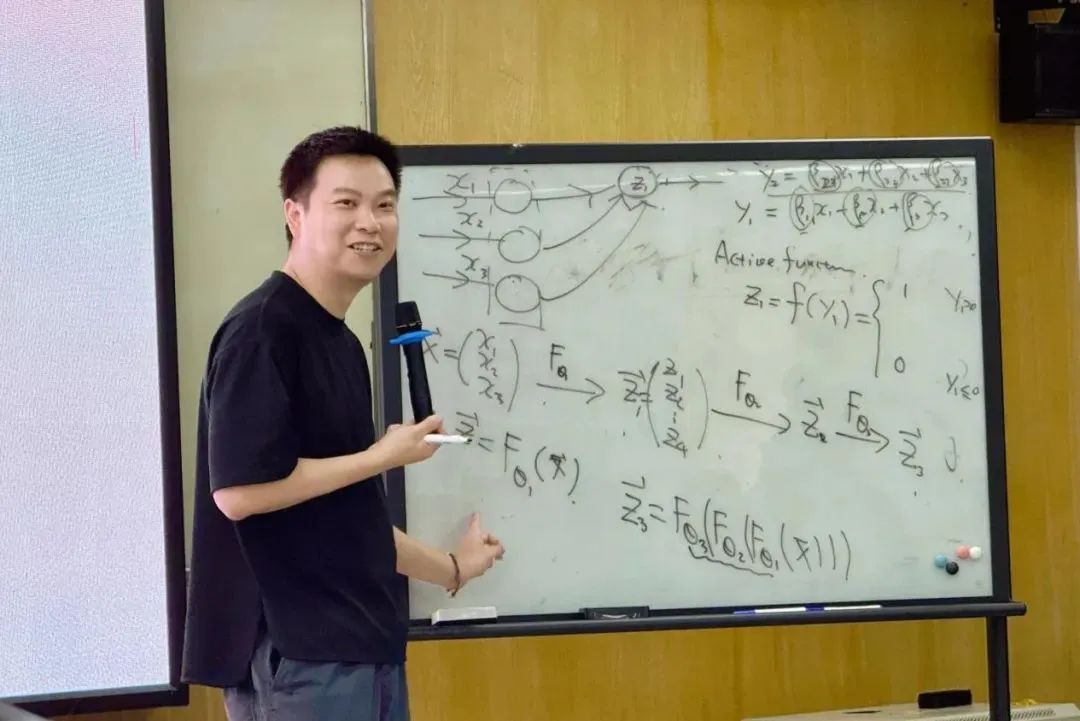 x₁
x₂
x₃
z₁
Y₂ = β₂₁x₁ + β₂₂x₂ + β₂₃x₃
Y₁ = β₁₁x₁ + β₁₂x₂ + β₁₃x₃
Active function
z₁ = f(Y₁) = { 1 Y₁>0
0 Y₁≤0
x⃗ = (x₁ x₂ x₃) F_θ₁ → z⃗₁ = (z₁ z₂ ⋮ z₄) F_θ₂ → z⃗₂ F_θ₃ → z⃗₃
z⃗ = F_θ₁(x⃗)
z⃗₃ = F_θ₃(F_θ₂(F_θ₁(x⃗)))